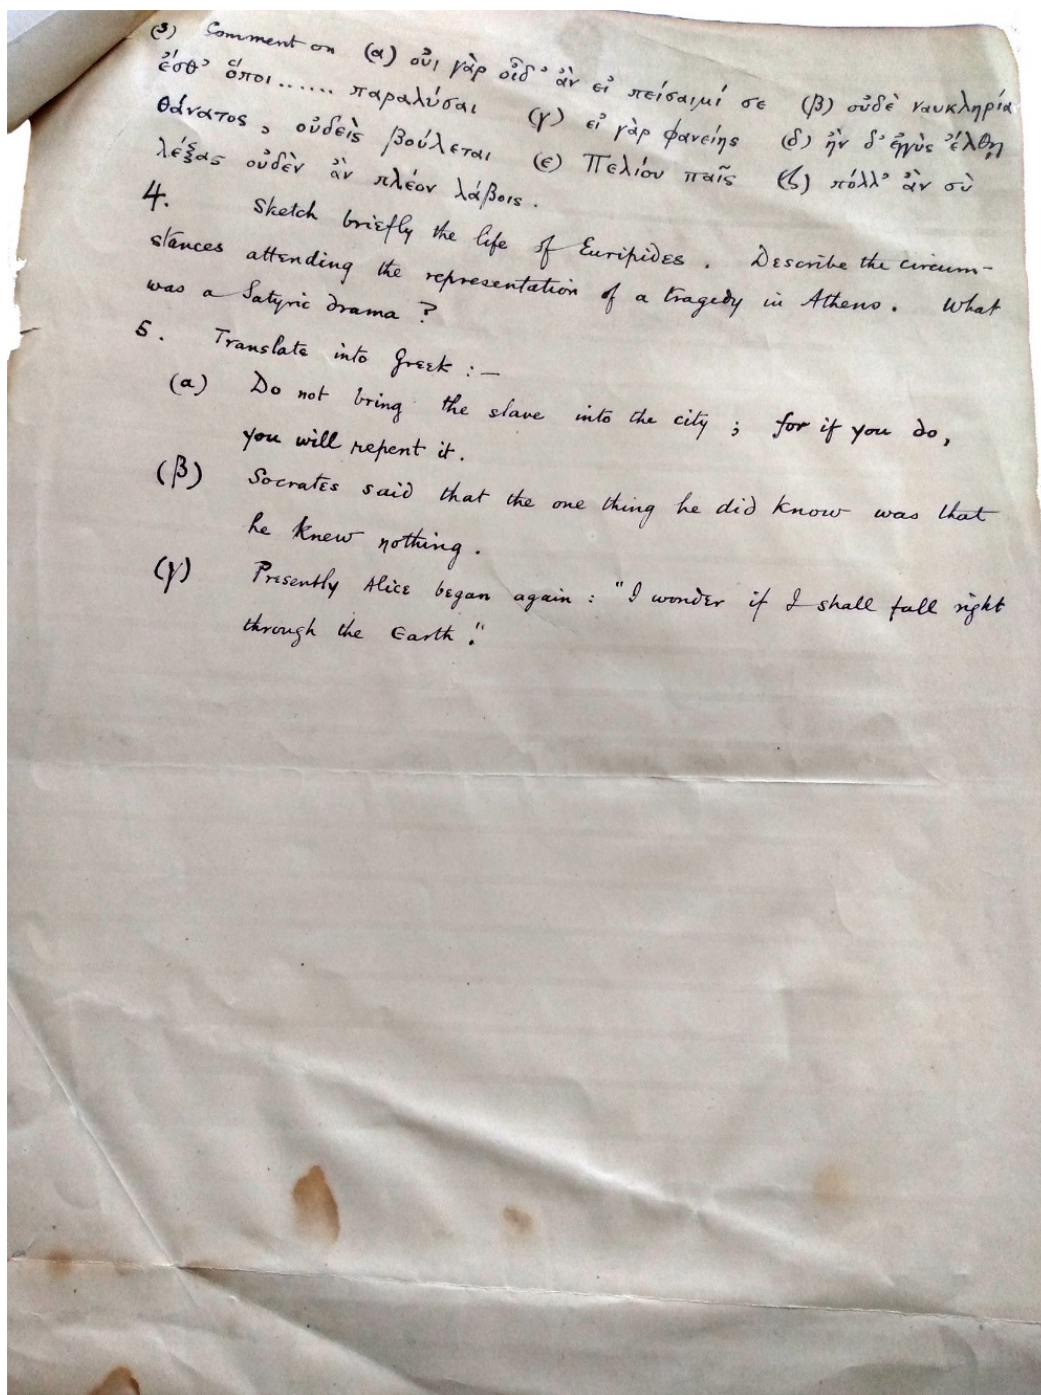 (3) Comment on (α) οὔι γὰρ οἶδ' ἂν εἰ πείσαιμί σε (β) οὐδὲ ναυκληρία
ἔσθ' ὅποι...... παραλύσαι (γ) εἰ γὰρ φανείης (δ) ἢν δ' ἐγγὺς ἔλθῃ
θάνατος, οὐδεὶς βούλεται (ε) Πελίου παῖς (ζ) πόλλ' ἂν σὺ
λέξας οὐδὲν ἂν πλέον λάβοις.
4. Sketch briefly the life of Euripides. Describe the circum-
stances attending the representation of a tragedy in Athens. What
was a Satyric drama?
5. Translate into Greek :—
(α) Do not bring the slave into the city ; for if you do,
you will repent it.
(β) Socrates said that the one thing he did know was that
he knew nothing.
(γ) Presently Alice began again : "I wonder if I shall fall right
through the Earth."